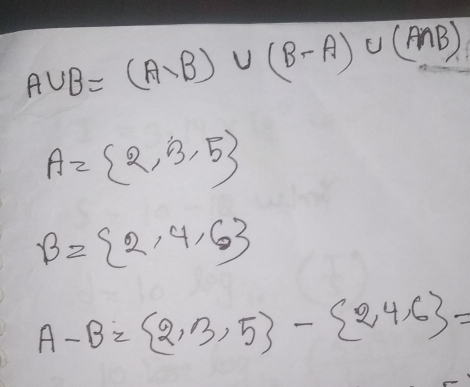 A∪B= (A\B) ∪ (B-A) ∪ (A∩B)
A= {2,3,5}
B= {2,4,6}
A-B= {2,3,5} - {2,4,6} =